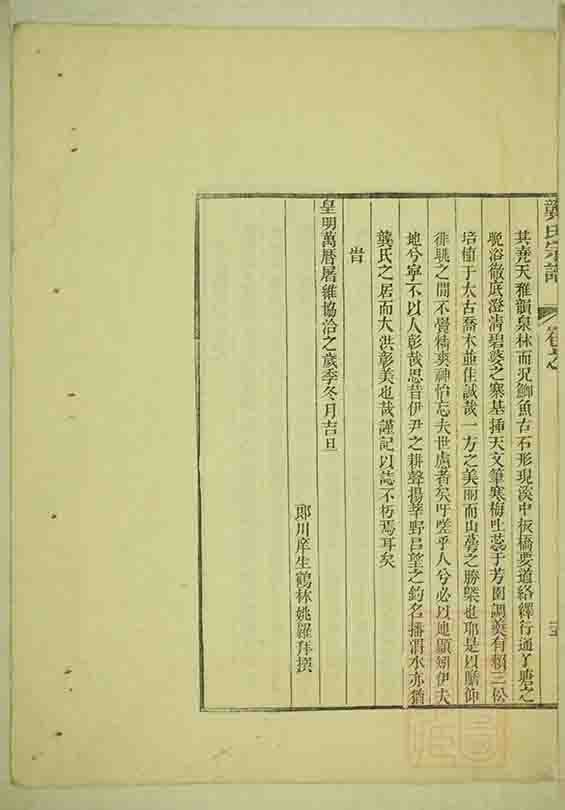 龔氏宗譜
卷之
其堯天雅韻泉林而況鯽魚古石形現溪中板橋要道絡繹行通了塘之
晚浴徹底澄清碧婆之寨基挿天文筆寒梅吐蕊于芳園調羹有賴三松
培植于太古喬木並佳誠哉一方之美丽而山
徘徊之間不覺精爽神怡忘夫世慮者矣吁嗟乎人兮必以地顯矧伊夫
地兮寧不以人彰哉思昔伊尹之耕聲揚莘野呂望之釣名播渭水亦猶
龔氏之居而大洪彰美也哉謹記以誌不朽焉耳矣
旹
皇明萬曆屠維協洽之歲季冬月吉旦
郎川庠生鶴林姚羅拜撰